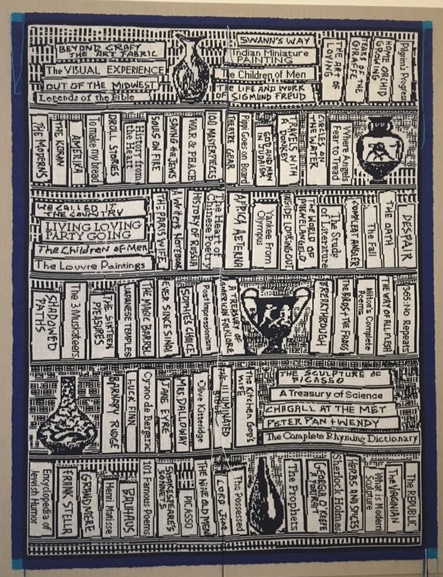 BEYOND CRAFT
THE ART FABRIC
The VISUAL EXPERIENCE
OUT OF THE MIDWEST
Legends of the Bible
SWANN'S WAY
Indian Miniature
PAINTING
The Children of Men
THE LIFE AND WORK
OF SIGMUND FREUD
THE ART OF
LOVING
YEARS OF THE
GIRAFFE
HOME ORCHID
GROWING
Pilgrim's Progress
THE MODERNS
THE
AMERICA
To make my bread
DROLL STORIES
History from
the Heart
SONS ON FIRE
SAVING THE JEWS
WAR & PEACE
101 MASTERPIECES
THEATRE GEAR
GOD AND MAN
IN JUDAISM
TRAVELS WITH
A DONKEY
Where Angels
Fear to Tread
WE CALLED IT
THE COUNTRY
LIVING LOVING
PARTY GOING
The Children of Men
The Louvre Paintings
THE PARIS WIFE
A Writer's Notebook
HISTORY OF RUSSIA
The Heart of
Chinese Poetry
AFRICA AETERNA
Yankee From
Olympus
INSIDE
THE WORLD OF
MICHELANGELO
The Study
of Literature
COMPLEAT ANGLER
The Fall
THE OATH
DESPAIR
SHADOWED
PATHS
The 3 Musketeers
THE SIXTEEN
PLEASURES
JAPANESE TEMPLES
THE MAGIC BARREL
EVER SINCE SINAI
SOPHIE'S CHOICE
Post Impressionism
A TREASURY OF
AMERICAN FOLKLORE
BREAKTHROUGH
THE BIRDS + THE FROGS
Milton's Complete
Poems
THE WAY OF ALL FLESH
365 No Repeats
BARNABY RUDGE
HUCK FINN
Cyrano de Bergerac
JANE EYRE
MRS. DALLOWAY
Olive Kitteridge
ILLUMINATED
The Kitchen God's
Wife
THE SCULPTURE OF
PICASSO
A Treasury of Science
CHAGALL AT THE MET
PETER PAN + WENDY
The Complete Rhyming Dictionary
Encyclopedia of
Jewish Humor
FRANK STELLA
GRINDMERE
Henri Matisse
BAUHAUS
101 Famous Poems
SHAKESPEARE'S
SONNETS
PICASSO
LORD JIM
The Possessed
The Prophets
GEORGIA O'KEEFFE
Sherlock Holmes
HERBS AND SPICES
What is Modern
Sculpture
The REPUBLIC